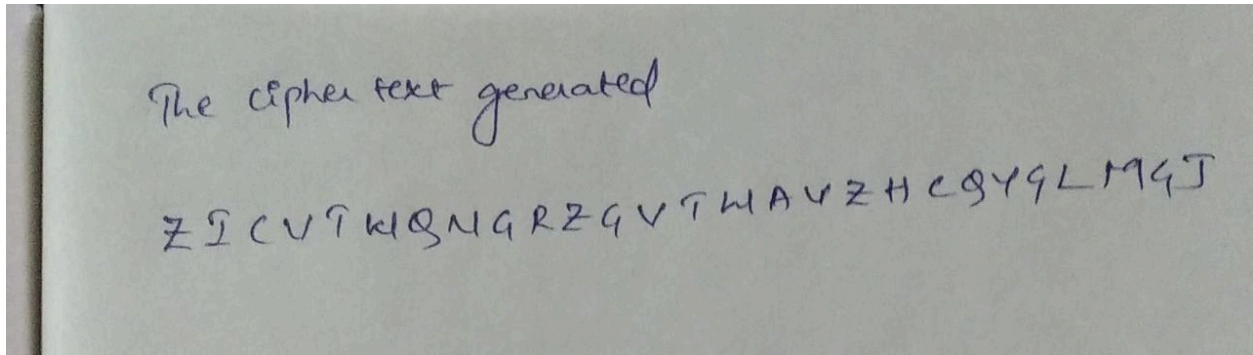 The cipher text generated
ZICVTWQNGRZGVTWAVZHCQYGLMGJ